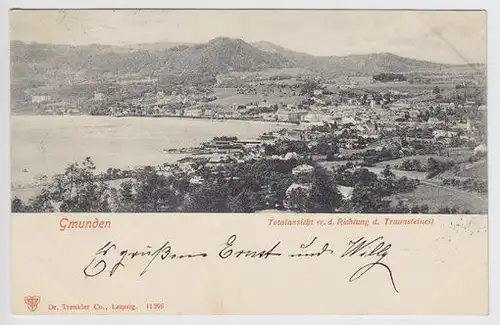 Gmunden
Totalansicht v. d. Richtung d. Traunsteines!
Es grüßen Ernst und Willy
Dr. Trenkler Co., Leipzig. 11298